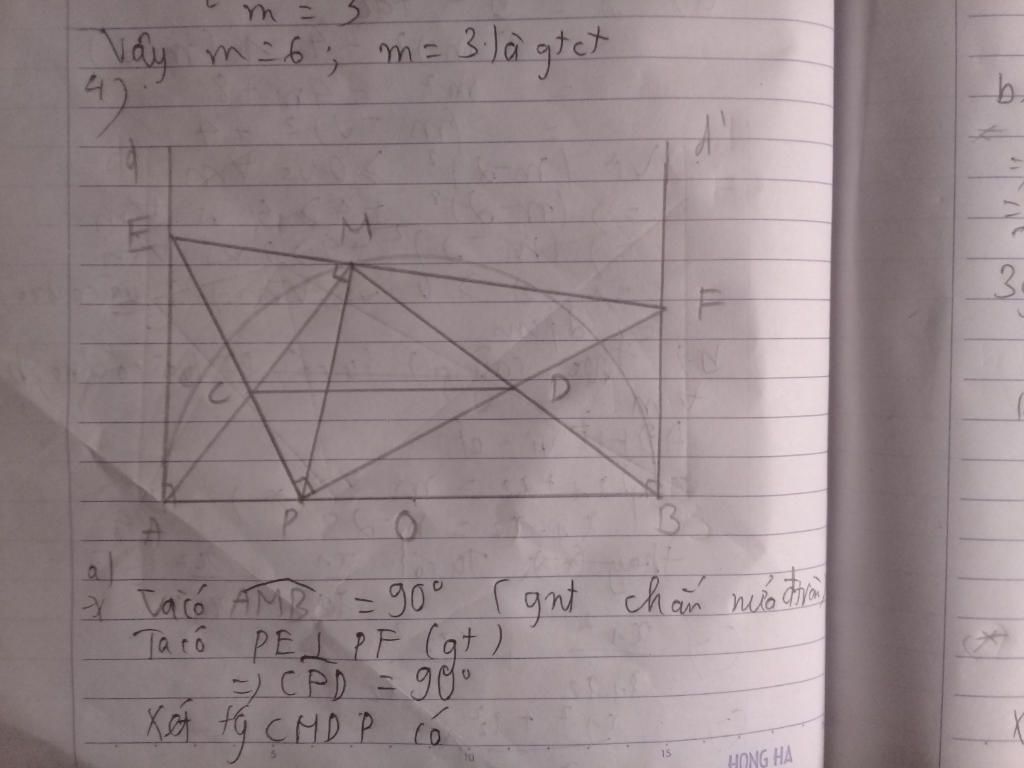 m = 3
Vậy m = 6 ; m = 3 là gtct
4)
d d'
E M
F
C D
A P O B
a)
Ta có AMB = 90° (gnt chắn nửa đtròn)
Ta có PE ⊥ PF (gt)
=> CPD = 90°
Xét tg CMDP có
5 10 15
HONG HA
b.